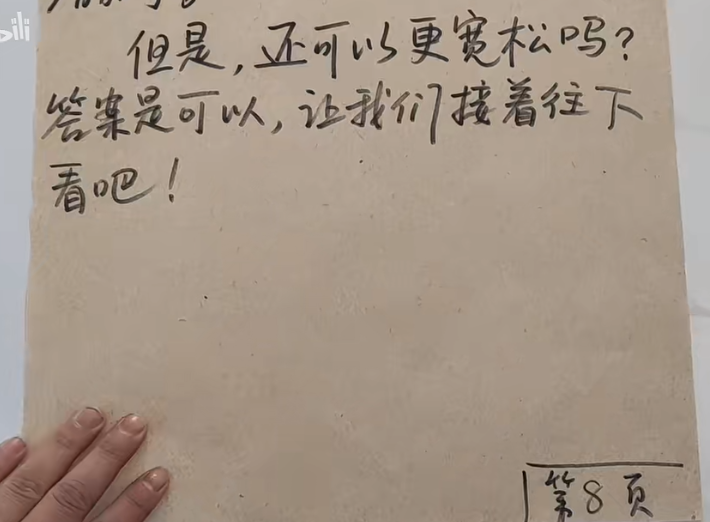 但是，还可以更宽松吗？
答案是可以，让我们接着往下
看吧！
第8页